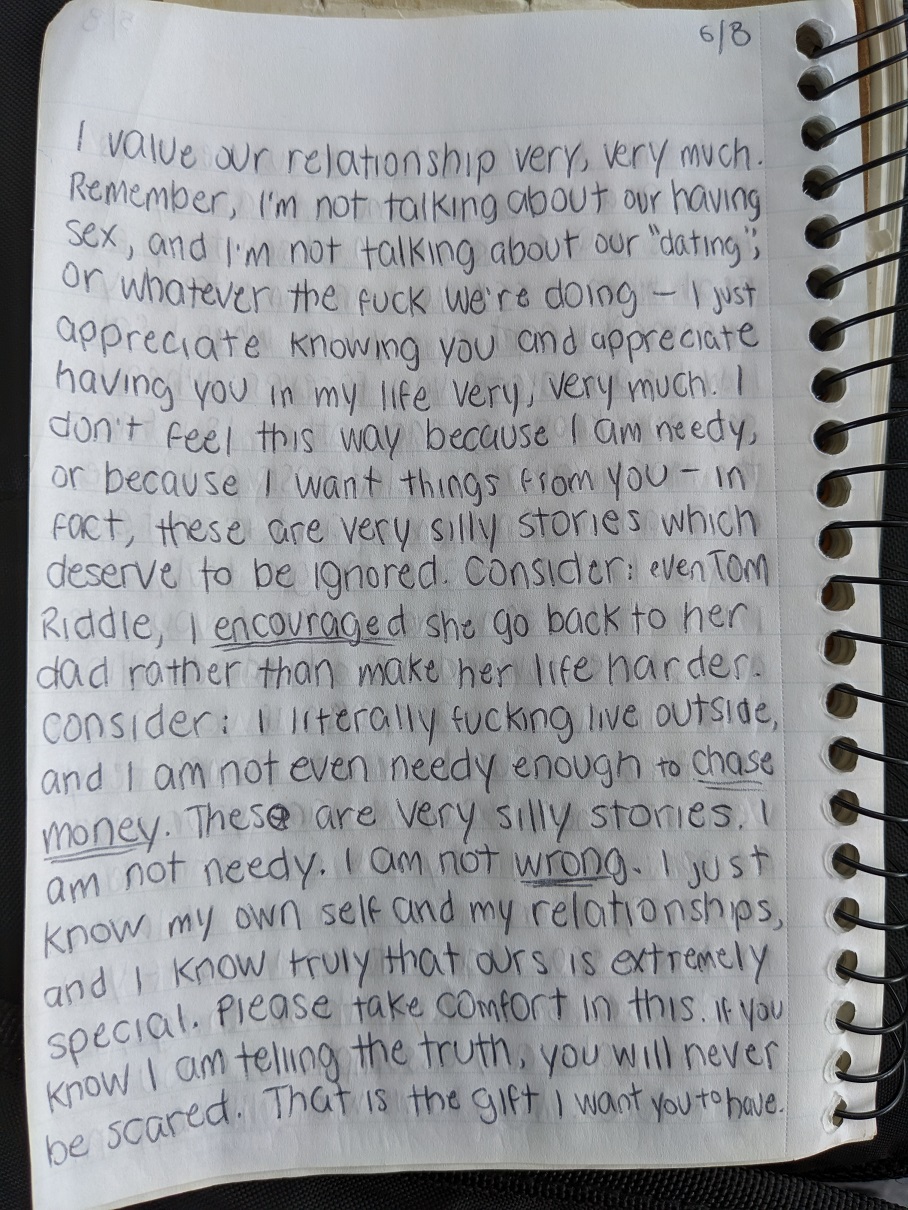 6/8
I value our relationship very, very much.
Remember, I'm not talking about our having
sex, and I'm not talking about our "dating",
or whatever the fuck we're doing – I just
appreciate knowing you and appreciate
having you in my life very, very much. I
don't feel this way because I am needy,
or because I want things from you – in
fact, these are very silly stories which
deserve to be ignored. Consider: even Tom
Riddle, I encouraged she go back to her
dad rather than make her life harder.
Consider: I literally fucking live outside,
and I am not even needy enough to chase
money. These are very silly stories. I
am not needy. I am not wrong. I just
know my own self and my relationships,
and I know truly that ours is extremely
special. Please take comfort in this. If you
know I am telling the truth, you will never
be scared. That is the gift I want you to have.